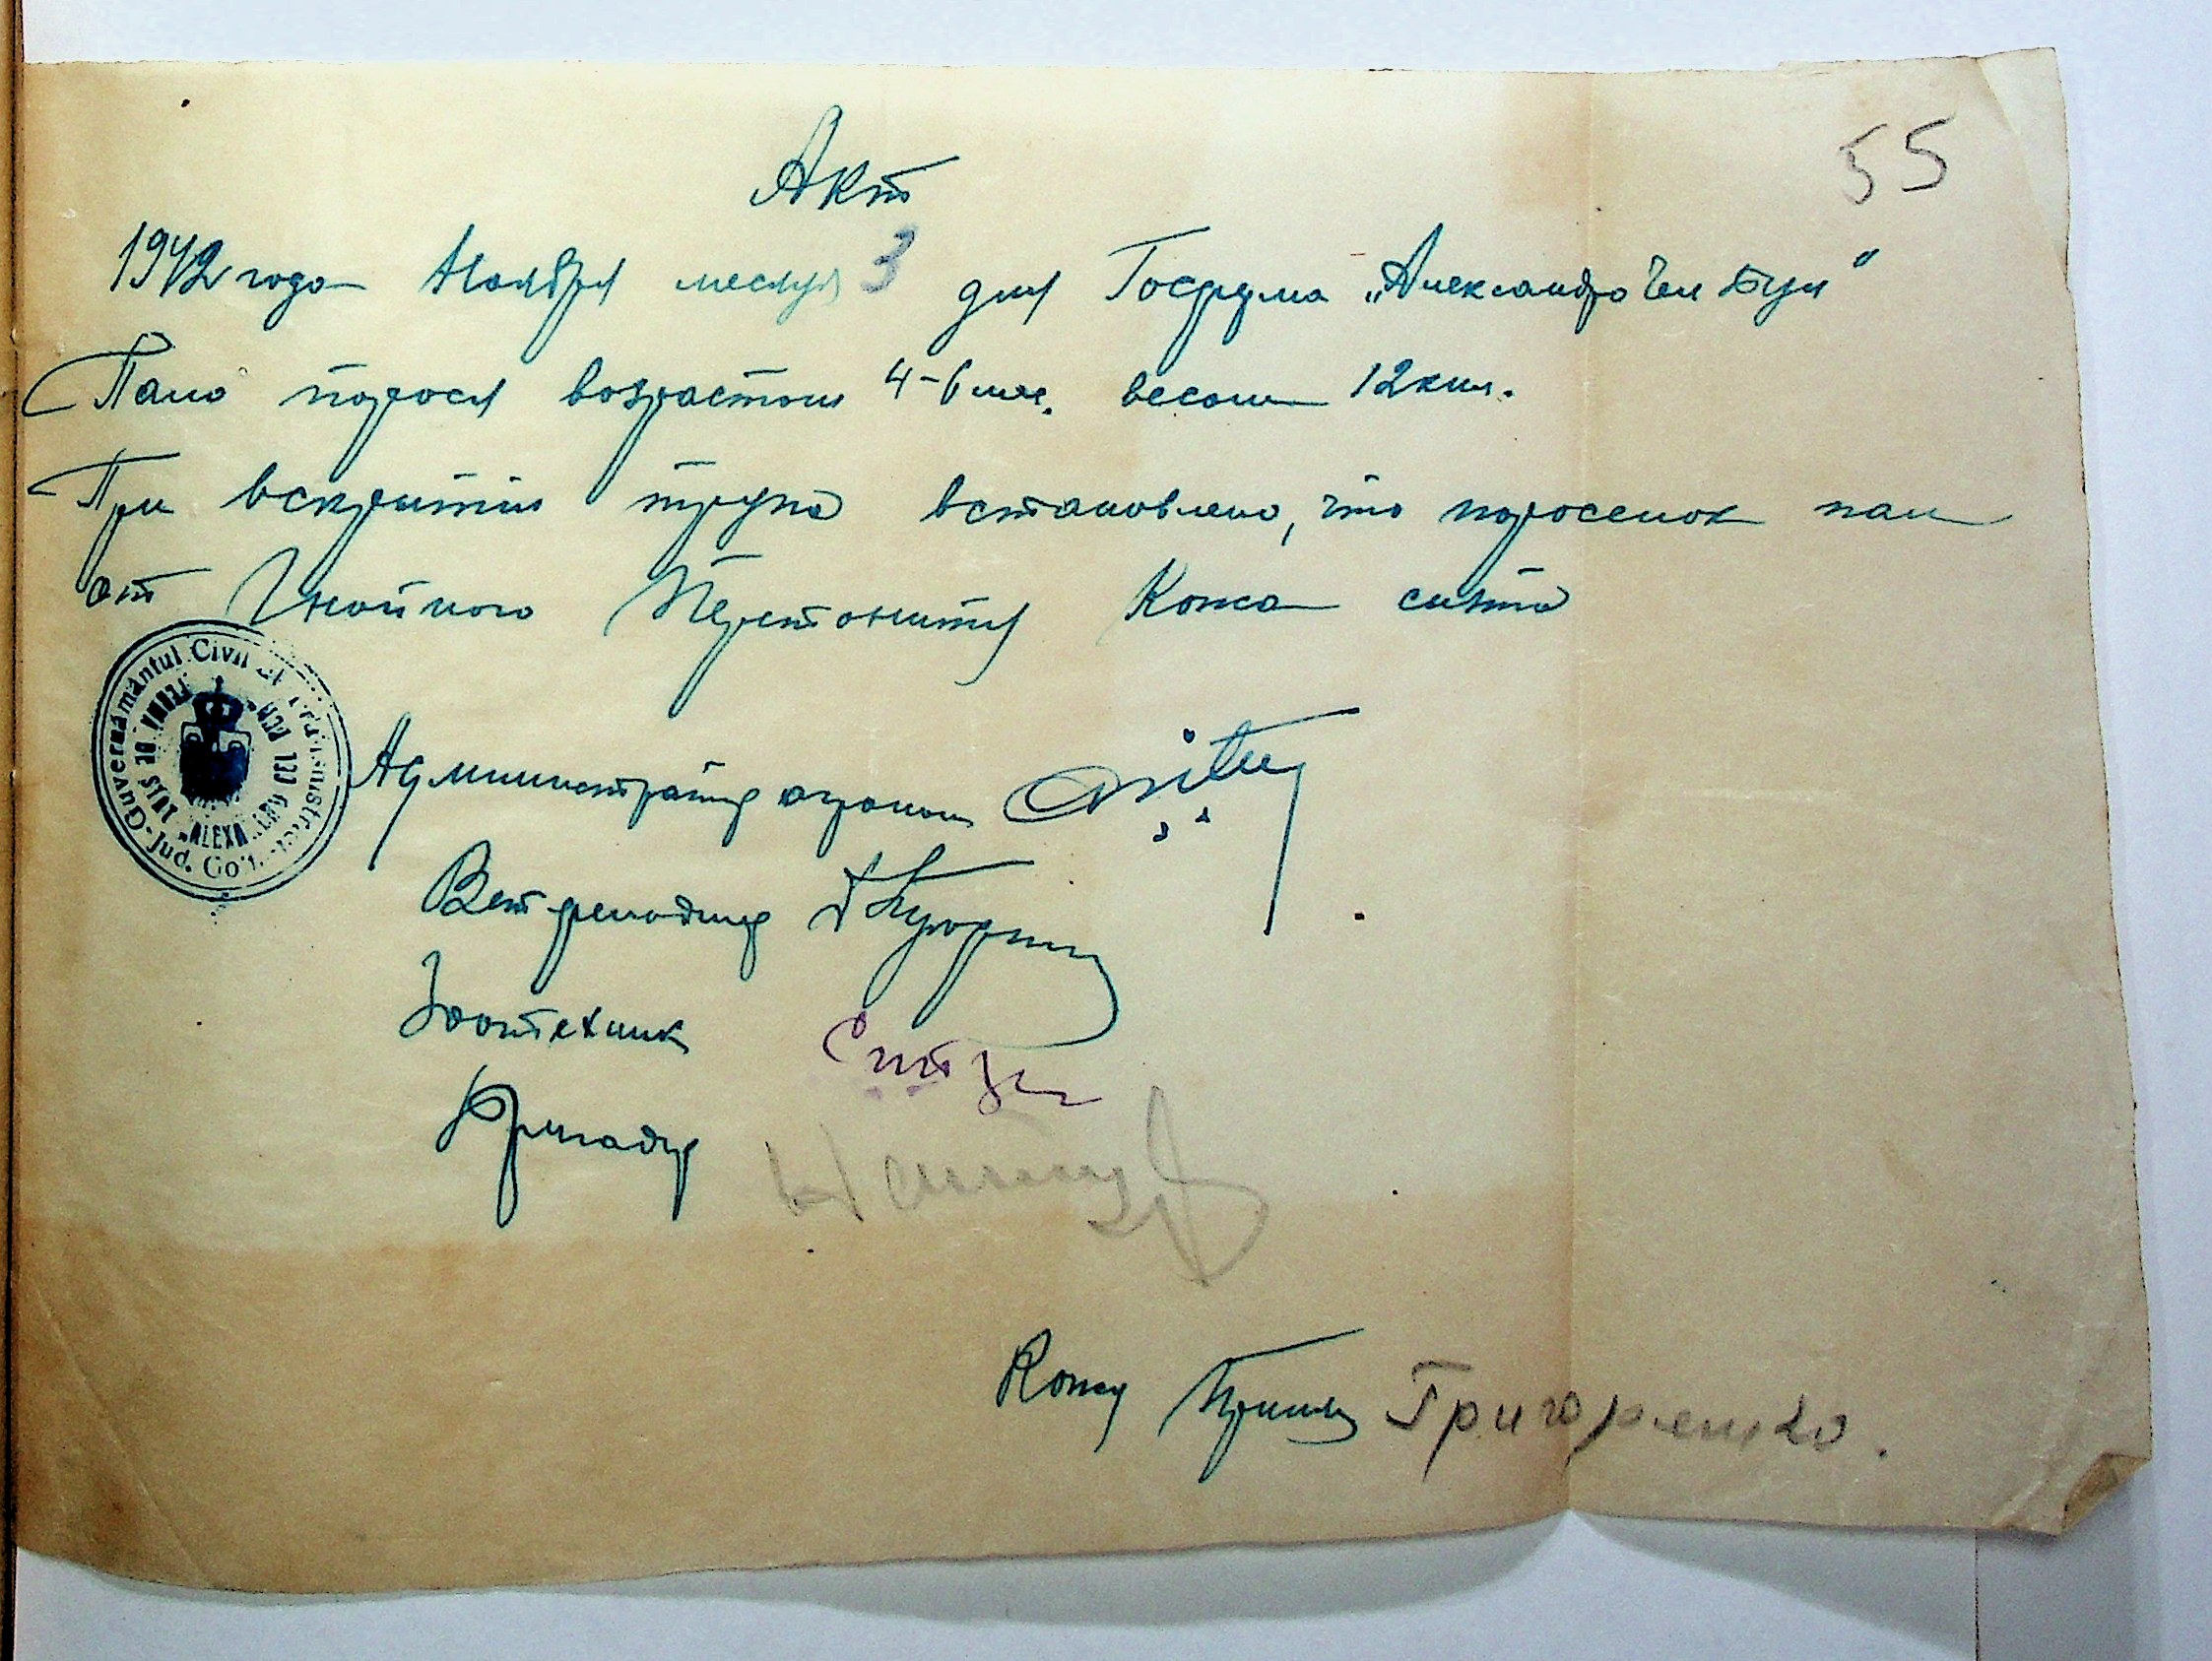 55
Акт
1942 года Ноября месяця 3 дня Госфрма „Александро Чел Бун"
Пало порося возрастом 4-6 мес. весом 12 кил.
При вскрытии трупа встановлено, что поросенок пал
от Гнойного Перетонита Кожа снята
Guvernământul Civil al Transnistriei Jud. Golta
FERMA DE STAT „ALEXANDRU CEL BUN"
Администратор агроном
Вет фельдшер
Зоотехник
Бригадир
Кожу Принял Григоренко.